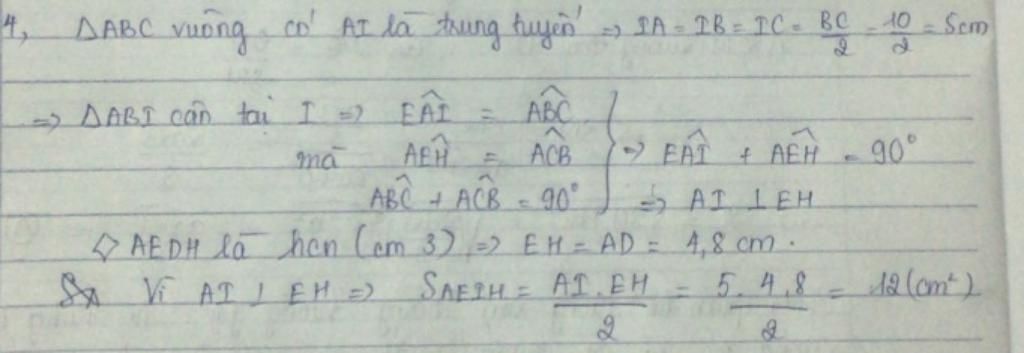 4, ΔABC vuông có AI là trung tuyến => IA = IB = IC = BC/2 = 10/2 = 5cm
=> ΔABI cân tại I => EÂI = AB̂C
mà AÊH = AĈB } => EÂI + AÊH = 90°
AB̂C + AĈB = 90° => AI ⊥ EH
◇ AEDH là hcn (cm 3) => EH = AD = 4,8 cm.
Vì AI ⊥ EH => SAEIH = AI.EH/2 = 5.4,8/2 = 12 (cm²)